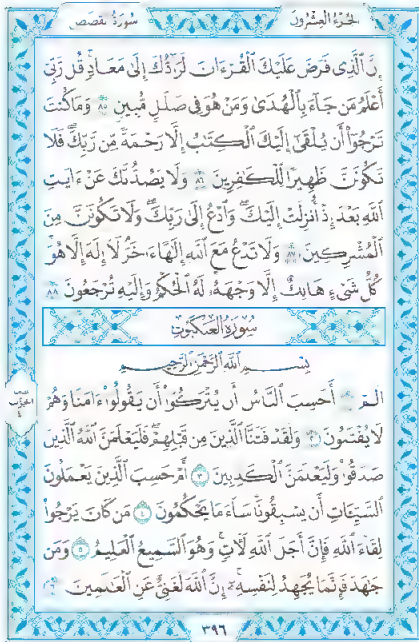 الجزء العشرون
سورة القصص
إِنَّ ٱلَّذِى فَرَضَ عَلَيْكَ ٱلْقُرْءَانَ لَرَآدُّكَ إِلَىٰ مَعَادٍ قُل رَّبِّىٓ
أَعْلَمُ مَن جَآءَ بِٱلْهُدَىٰ وَمَنْ هُوَ فِى ضَلَٰلٍ مُّبِينٍ ٨٥ وَمَا كُنتَ
تَرْجُوٓا۟ أَن يُلْقَىٰٓ إِلَيْكَ ٱلْكِتَٰبُ إِلَّا رَحْمَةً مِّن رَّبِّكَ فَلَا
تَكُونَنَّ ظَهِيرًا لِّلْكَٰفِرِينَ ٨٦ وَلَا يَصُدُّنَّكَ عَنْ ءَايَٰتِ
ٱللَّهِ بَعْدَ إِذْ أُنزِلَتْ إِلَيْكَ وَٱدْعُ إِلَىٰ رَبِّكَ وَلَا تَكُونَنَّ مِنَ
ٱلْمُشْرِكِينَ ٨٧ وَلَا تَدْعُ مَعَ ٱللَّهِ إِلَٰهًا ءَاخَرَ لَآ إِلَٰهَ إِلَّا هُوَ
كُلُّ شَىْءٍ هَالِكٌ إِلَّا وَجْهَهُۥ لَهُ ٱلْحُكْمُ وَإِلَيْهِ تُرْجَعُونَ ٨٨
سورة العنكبوت
بِسْمِ ٱللَّهِ ٱلرَّحْمَٰنِ ٱلرَّحِيمِ
الٓمٓ ١ أَحَسِبَ ٱلنَّاسُ أَن يُتْرَكُوٓا۟ أَن يَقُولُوٓا۟ ءَامَنَّا وَهُمْ
لَا يُفْتَنُونَ ٢ وَلَقَدْ فَتَنَّا ٱلَّذِينَ مِن قَبْلِهِمْ فَلَيَعْلَمَنَّ ٱللَّهُ ٱلَّذِينَ
صَدَقُوا۟ وَلَيَعْلَمَنَّ ٱلْكَٰذِبِينَ ٣ أَمْ حَسِبَ ٱلَّذِينَ يَعْمَلُونَ
ٱلسَّيِّـَٔاتِ أَن يَسْبِقُونَا سَآءَ مَا يَحْكُمُونَ ٤ مَن كَانَ يَرْجُوا۟
لِقَآءَ ٱللَّهِ فَإِنَّ أَجَلَ ٱللَّهِ لَءَاتٍ وَهُوَ ٱلسَّمِيعُ ٱلْعَلِيمُ ٥ وَمَن
جَٰهَدَ فَإِنَّمَا يُجَٰهِدُ لِنَفْسِهِۦٓ إِنَّ ٱللَّهَ لَغَنِىٌّ عَنِ ٱلْعَٰلَمِينَ ٦
٣٩٦